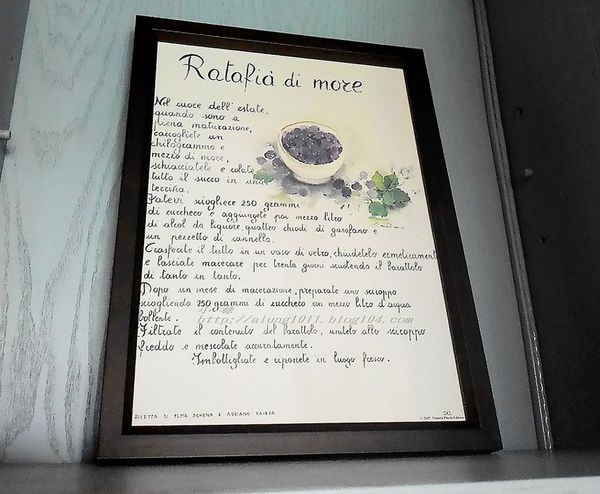 Ratafià di more
Nel cuore dell'estate,
quando sono a
piena maturazione,
raccogliete un
chilogrammo e
mezzo di more,
schiacciatele e colate
tutto il succo in una
terrina.
Fatevi sciogliere 250 grammi
di zucchero e aggiungete poi mezzo litro
di alcol da liquore, quattro chiodi di garofano e
un pezzetto di cannella.
Trasferite il tutto in un vaso di vetro, chiudetelo ermeticamente
e lasciate macerare per trenta giorni scuotendo il barattolo
di tanto in tanto.
Dopo un mese di macerazione, preparate uno sciroppo
sciogliendo 250 grammi di zucchero con mezzo litro d'acqua
bollente.
小蓉
http://alung1011.blog104.com/
Filtrate il contenuto del barattolo, unitelo allo sciroppo
freddo e mescolate accuratamente.
Imbottigliate e riponete in luogo fresco.
RICETTA DI ELMA SCHENA E ADRIANO RAVERA